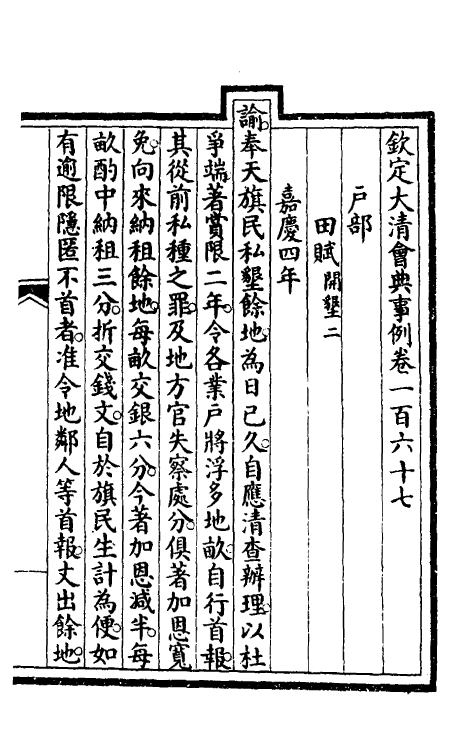 欽定大清會典事例卷一百六十七
戶部
田賦開墾二
嘉慶四年
諭奉天旗民私墾餘地為日已久自應清查辦理以杜
爭端著賞限二年令各業戶將浮多地畝自行首報
其從前私種之罪及地方官失察處分俱著加恩寬
免向來納租餘地每畝交銀六分今著加恩減半每
畝酌中納租三分折交錢文自於旗民生計為便如
有逾限隱匿不首者准令地鄰人等首報丈出餘地